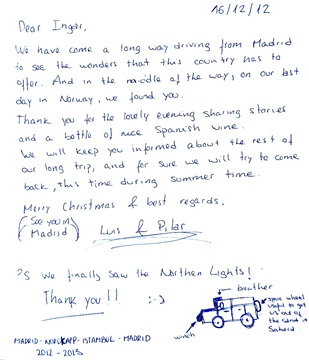 16/12/12
Dear Inger,
We have come a long way driving from Madrid
to see the wonders that this country has to
offer. And in the middle of the way, on our last
day in Norway, we found you.
Thank you for the lovely evening sharing stories
and a bottle of nice Spanish wine.
We will keep you informed about the rest of
our long trip, and for sure we will try to come
back, this time during summer time.
Merry Christmas & best regards,
(See you in
Madrid)
Luis & Pilar
PS we finally saw the Northen Lights!
Thank you!! :-)
breather
spare wheel
useful to get
us out of
the sand in
Sahara
winch
MADRID - NORDKAPP - ISTAMBUL - MADRID
2012 - 2013